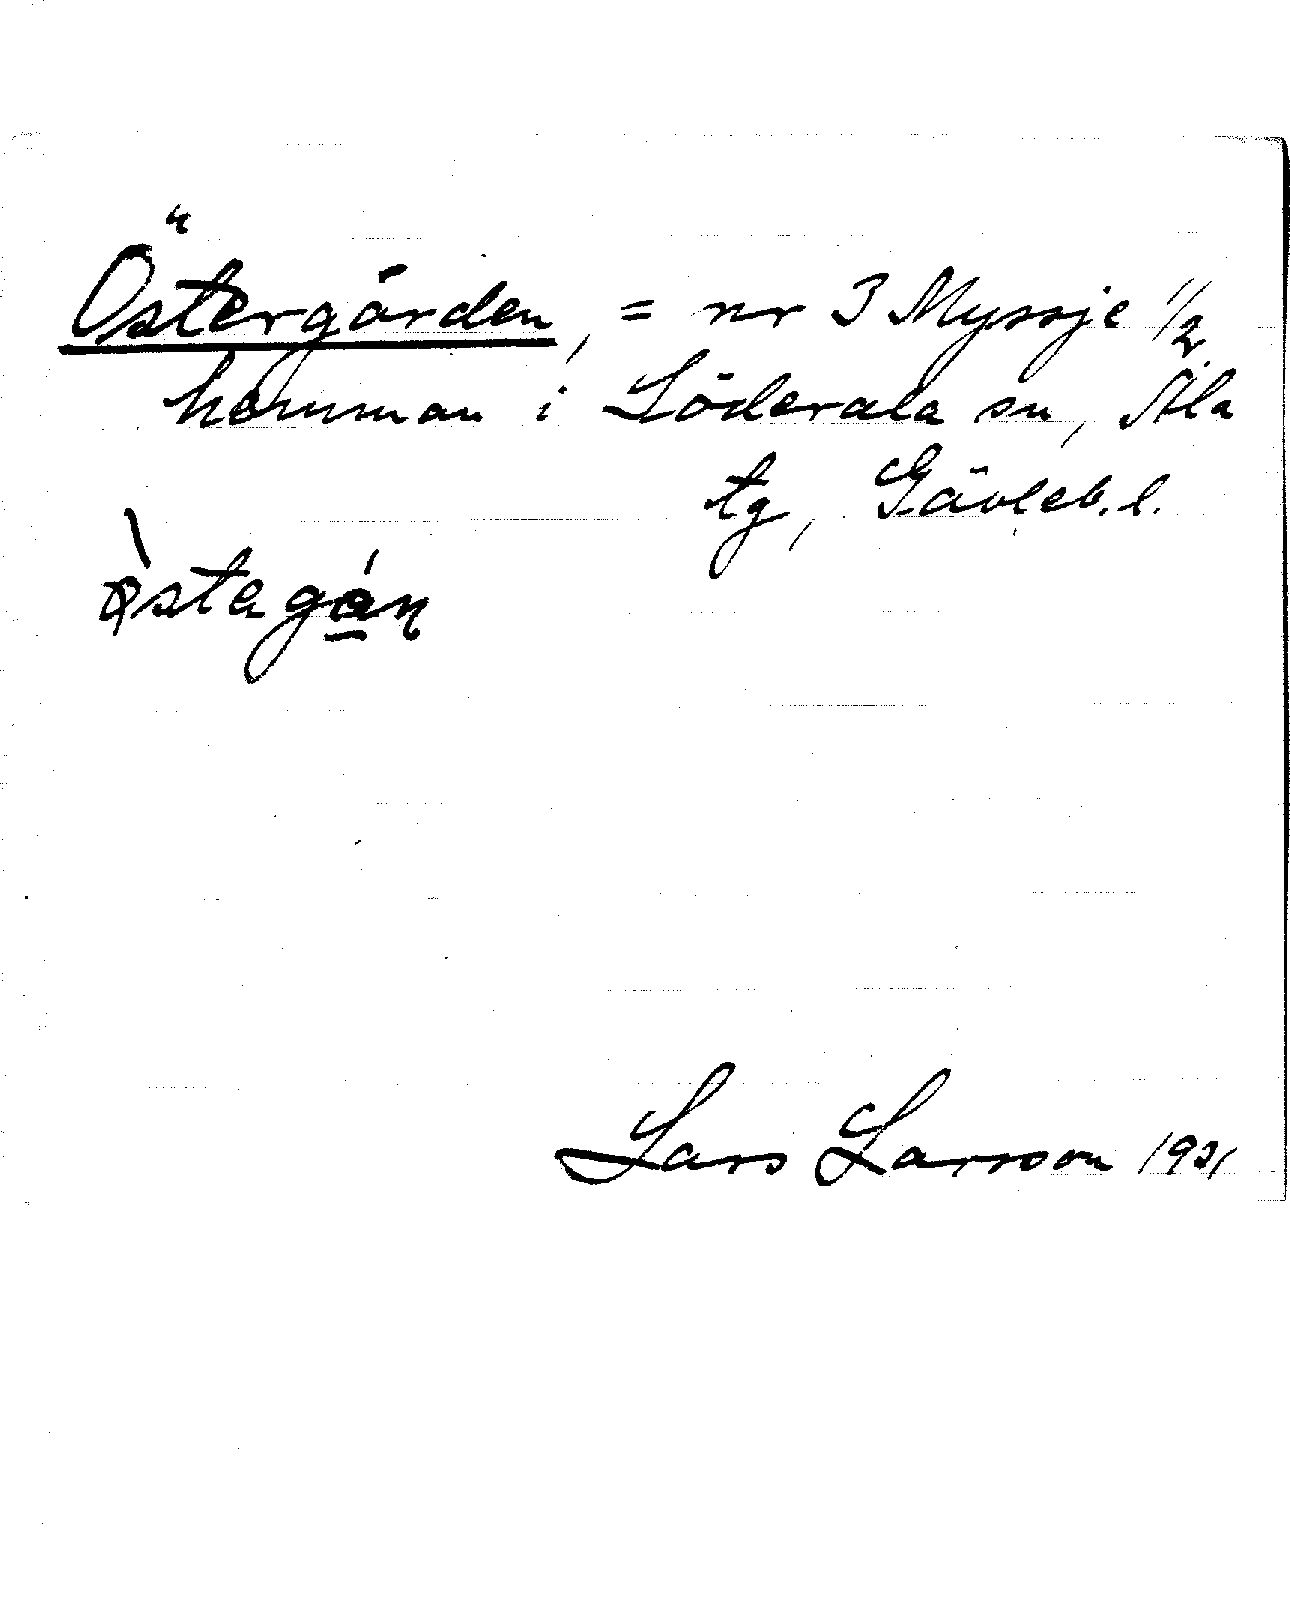 Östergården, = nr 3 Myssje 1/2
hemman i Söderala sn, Ala
tg, Gävleb. l.
Lars Larsson 1931